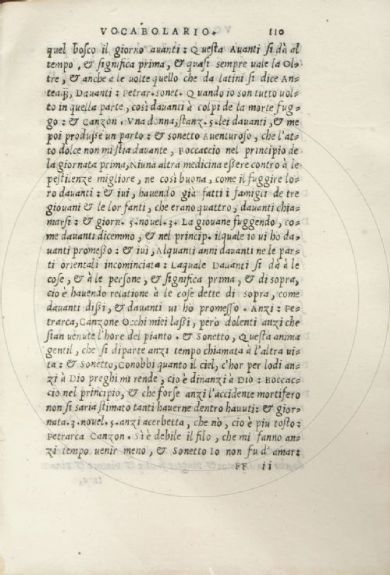 VOCABOLARIO. 110
quel bosco il giorno avanti: Questa Avanti si dà al
tempo, & significa prima, & quasi sempre vale la Ol-
tre, & anche a le uolte quello che da latini si dice An-
tea ij, Dauanti: Petrar. sonet. Quando io son tutto uol-
to in quella parte, così dauanti à colpi de la morte fug-
go: & Canzon. Vna donna, stanz. 5. lei dauanti, & me
poi produsse un parto: & Sonetto Auenturoso, che l'at-
to dolce non mi stia dauante, Boccaccio nel principio de
la giornata prima, Niuna altra medicina essere contro à le
pestienze migliore, ne così buona, come il fuggire lo-
ro dauanti: & iui, hauendo già fatti i famigli de tre
giouani & le lor fanti, che erano quattro, dauanti chia-
marsi: & giorn. 5. nouel. 3. La giouane fuggendo, co-
me dauanti dicemmo, & nel princip. ilquale io ui ho da-
uanti promesso: & iui, Alquanti anni dauanti ne le par-
ti orientali incominciata: Laquale Dauanti si dà à le
cose, & à le persone, & significa prima, & di sopra,
cio è hauendo relatione à le cose dette di sopra, come
dauanti dissi, & dauanti ui ho promesso. Anzi: Pe-
trarca, Canzone Occhi miei lassi, però dolenti anzi che
sian uenute l'hore del pianto. & Sonetto, Questa anima
gentil, che si diparte anzi tempo chiamata à l'altra ui-
ta: & Sonetto, Conobbi quanto il ciel, c'hor per lodi an-
zi à Dio preghi mi rende, cio è dinanzi à Dio: Boccac-
cio nel principio, & che forse anzi l'accidente mortifero
non si saria stimato tanti hauerne dentro hauuti: & gior-
nata. 3. nouel. 5. anzi acerbetta, che nò, cio è piu tosto:
Petrarca Canzon. Si è debile il filo, che mi fanno an-
zi tempo uenir meno, & Sonetto Io non fu d'amar:
FF ii